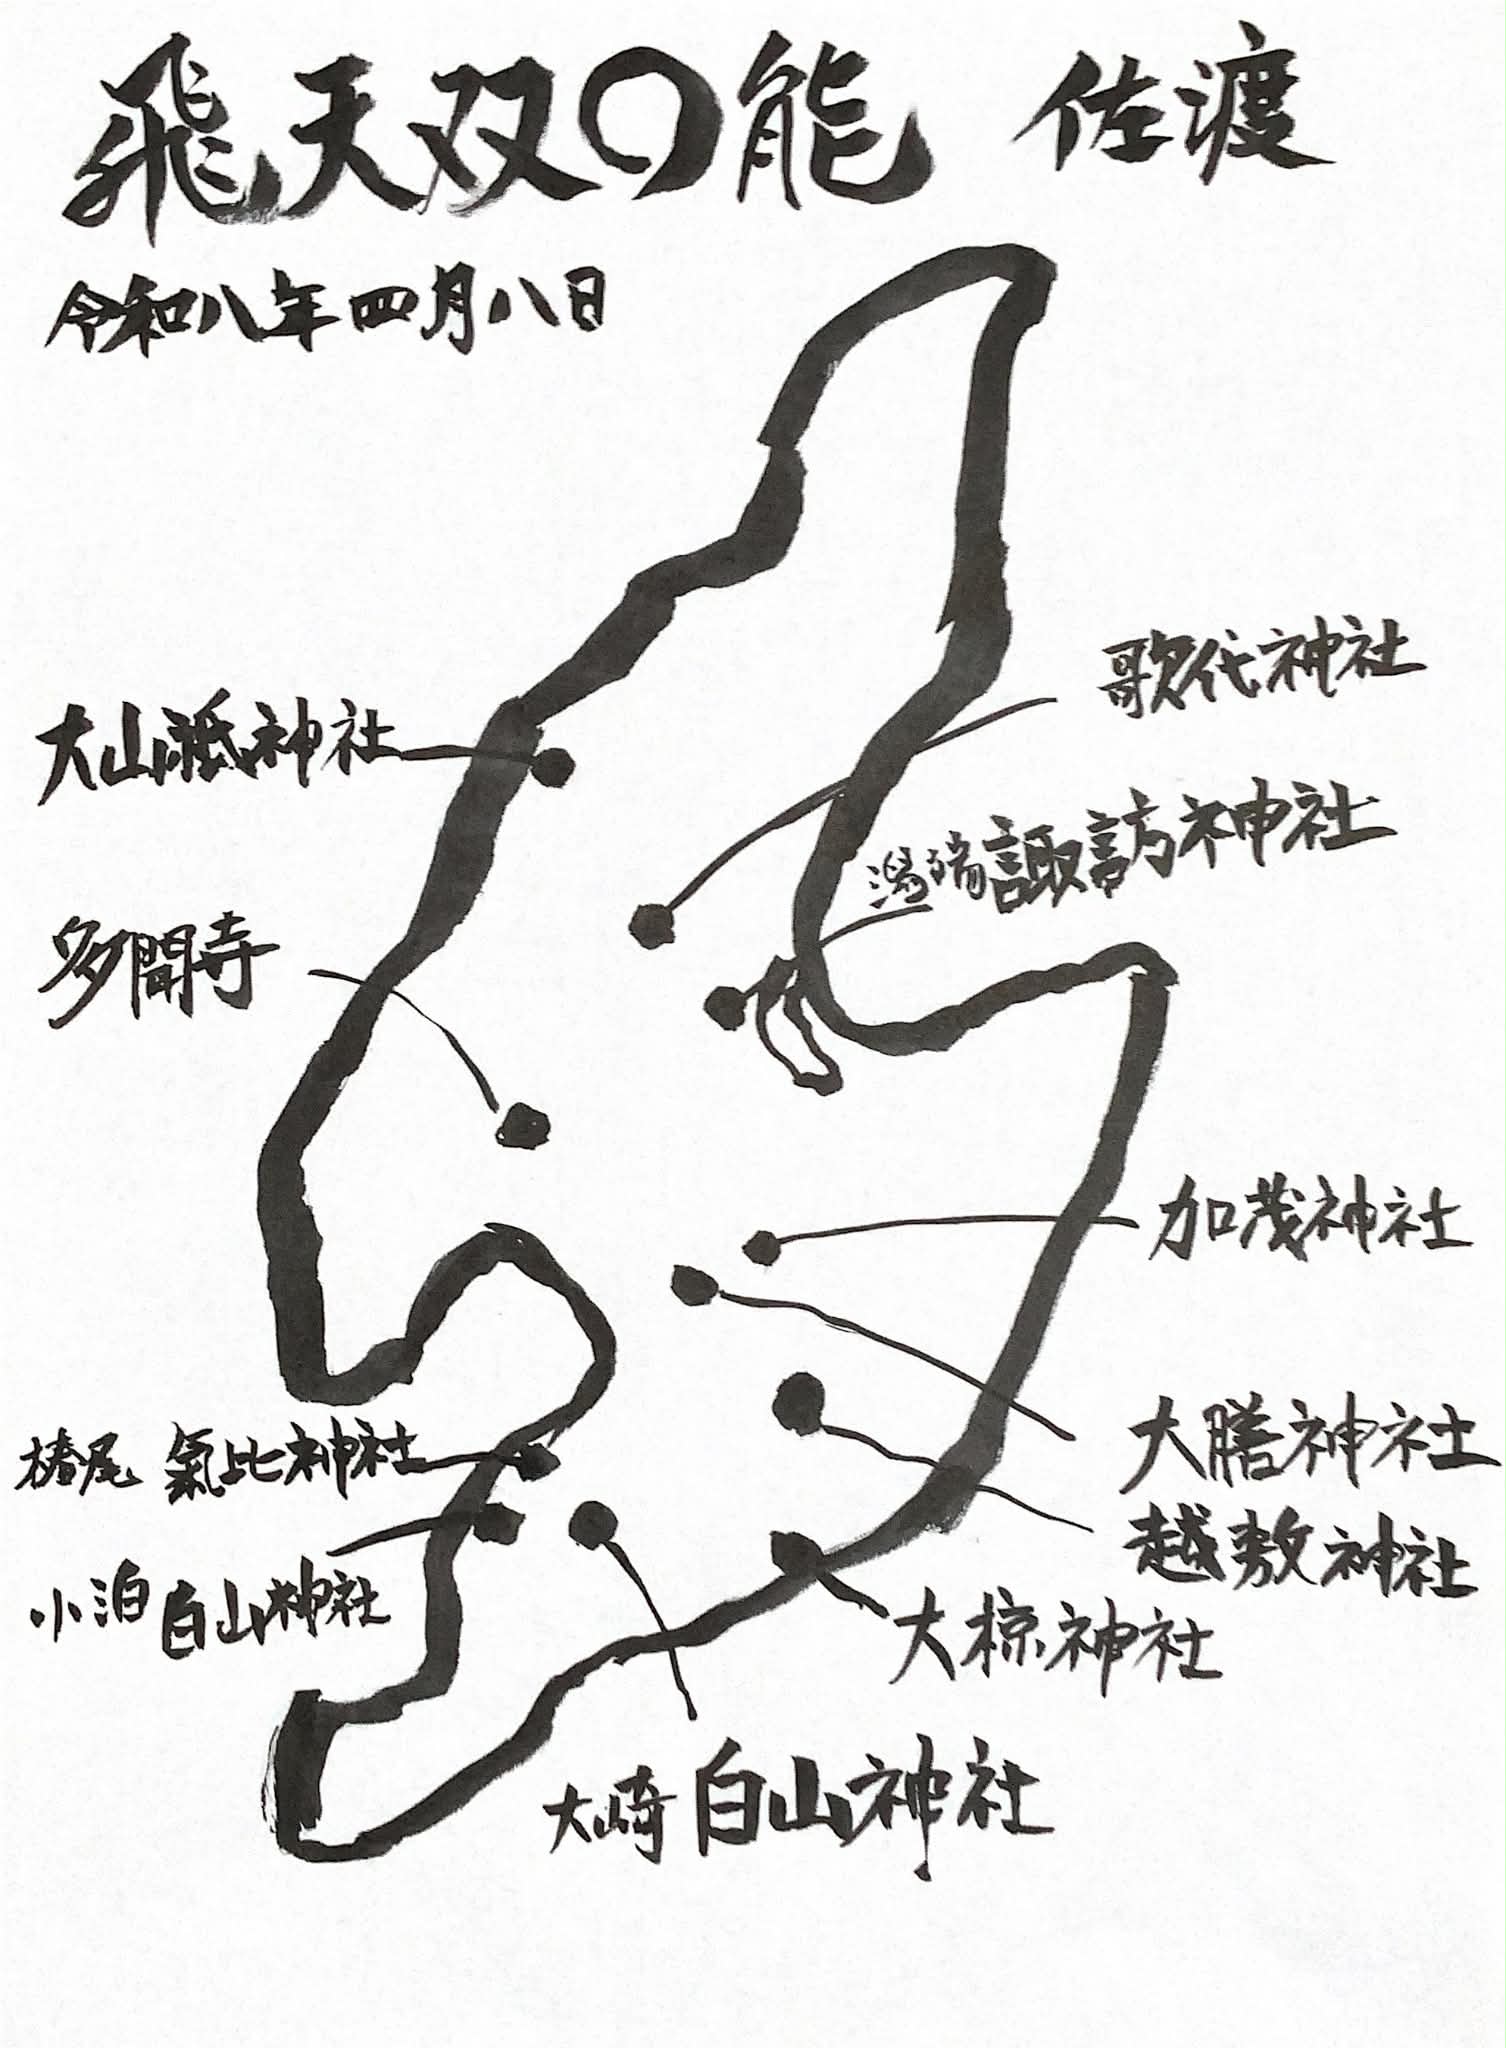 飛天双〇能 佐渡
令和八年四月八日
歌代神社
大山祗神社
潟端諏訪神社
多聞寺
加茂神社
大膳神社
椿尾 氣比神社
越敷神社
小泊白山神社
大椋神社
大崎白山神社